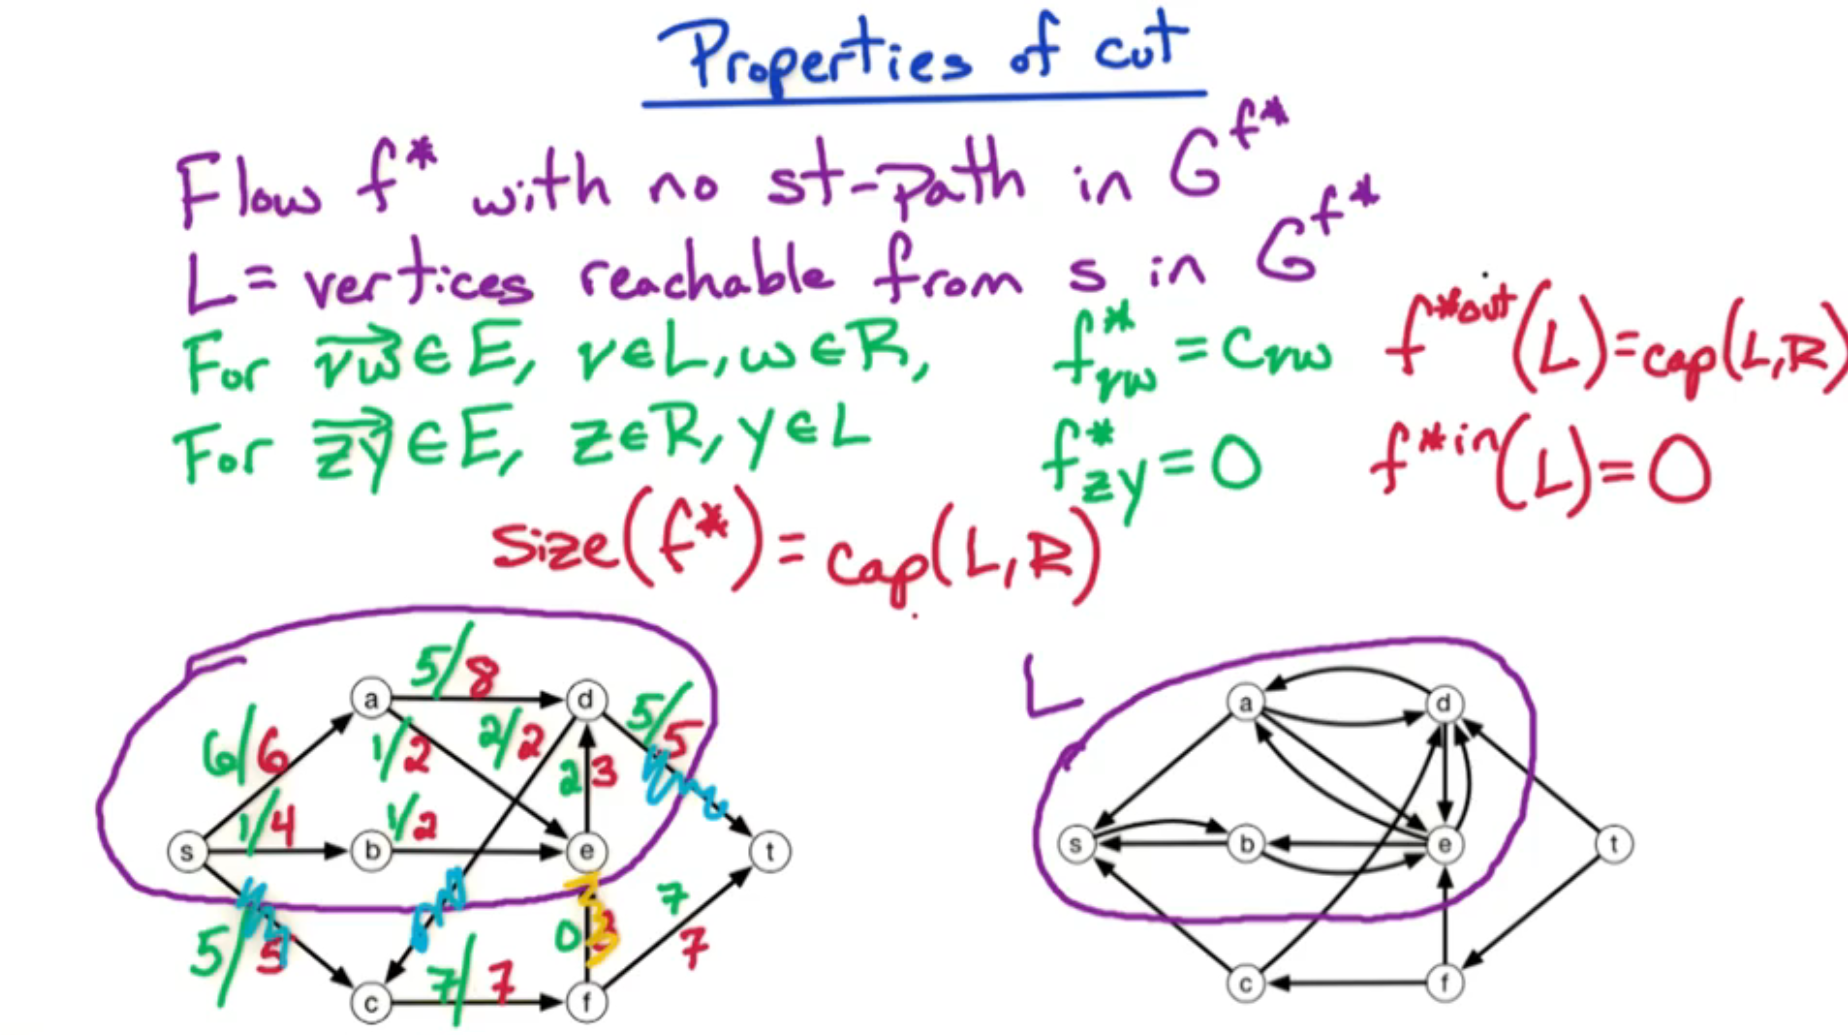 Properties of cut
Flow f* with no st-path in G^f*
L = vertices reachable from s in G^f*
For vw ∈ E, v ∈ L, w ∈ R, f*vw = Cvw f*out(L) = cap(L,R)
For zy ∈ E, z ∈ R, y ∈ L f*zy = 0 f*in(L) = 0
size(f*) = cap(L,R)
L
5/8
a d a d
6/6 1/2 2/2 5/5
2 3
1/4 1/2
s b e t s b e t
5/5 7/7 0 3 7 7
c f c f